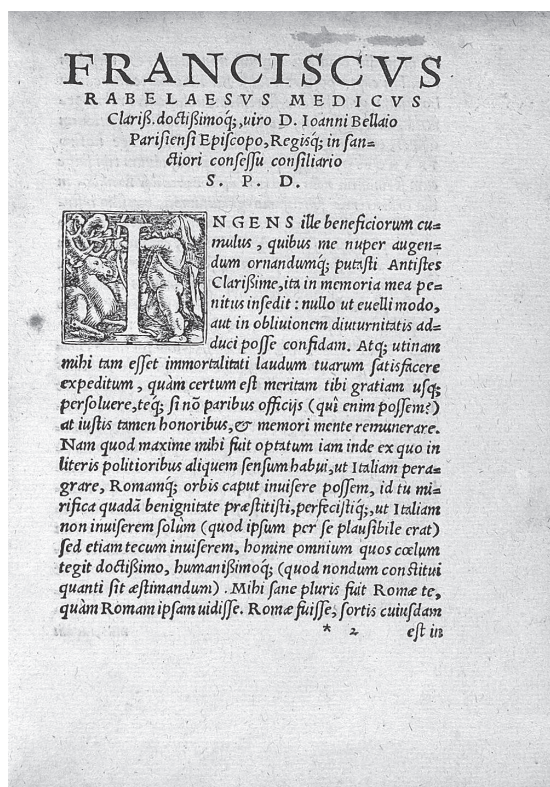 FRANCISCVS
RABELAESVS MEDICVS
Clariß. doctißimoq;, uiro D. Ioanni Bellaio
Parisiensi Episcopo, Regisq́; in san=
ctiori consessu consiliario
S. P. D.
INGENS ille beneficiorum cu=
mulus, quibus me nuper augen=
dum ornandumq́; putasti Antistes
Clarißime, ita in memoria mea pe=
nitus insedit: nullo ut euelli modo,
aut in obliuionem diuturnitatis ad=
duci posse confidam. Atq; utinam
mihi tam esset immortalitati laudum tuarum satisfacere
expeditum, quàm certum est meritam tibi gratiam usq;
persoluere, teq́; si nõ paribus officijs (quî enim possem?)
at iustis tamen honoribus, & memori mente remunerare.
Nam quod maxime mihi fuit optatum iam inde ex quo in
literis politioribus aliquem sensum habui, ut Italiam pera=
grare, Romamq́; orbis caput inuisere possem, id tu mi=
rifica quadã benignitate præstitisti, perfecistiq́;, ut Italiam
non inuiserem solùm (quod ipsum per se plausibile erat)
sed etiam tecum inuiserem, homine omnium quos cœlum
tegit doctißimo, humanißimoq́; (quod nondum constitui
quanti sit æstimandum). Mihi sane pluris fuit Romæ te,
quàm Romam ipsam uidisse. Romæ fuisse, sortis cuiusdam
* 2 est in